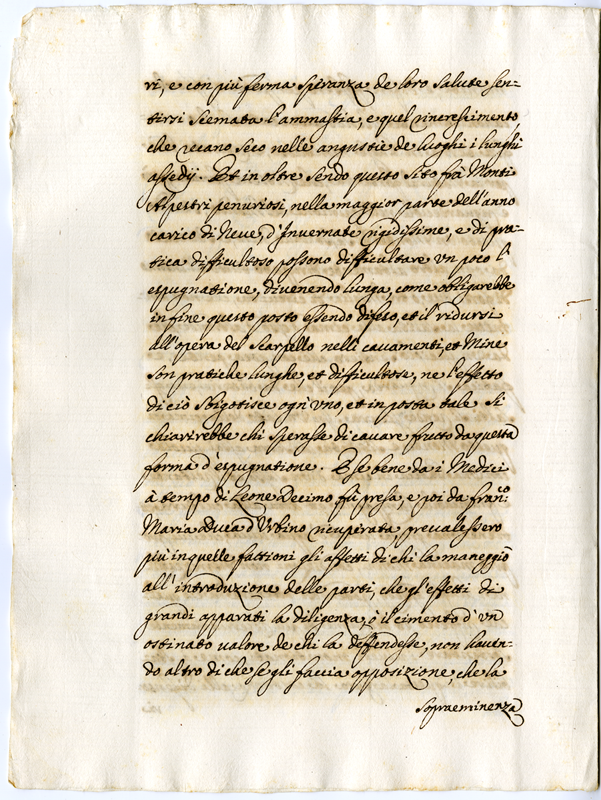 ri, e con più ferma speranza de loro salute sen-
tirsi scemata l'ammastia, e quel rincrescimento
che recano seco nelle angustie de luoghi i lunghi
assedij. Et in oltre sendo questo sito frà Monti
Alpestri penuriosi, nella maggior parte dell'anno
carico di Neve, d'Invernate rigidissime, e di pra-
tica difficultoso possono difficultare un poco l'
espugnatione, divenendo lunga, come obligarebbe
in fine questo posto essendo difeso, et il ridursi
all'opera del Scarpello nelli cavamenti, et Mine
son pratiche lunghe, et difficultose, ne l'effetto
di ciò sbigotisce ogn'uno, et in posta tale si
chiarirebbe chi sperasse di cavare frutto da questa
forma d'espugnatione. E se bene da i Medici
à tempo di Leone Decimo fù presa, e poi da Fran:co
Maria Duca d'Urbino ricuperata, prevalessero
più in quelle fattioni gli affetti di chi la maneggiò
all'introduzione delle parti, che gl'effetti di
grandi apparati la diligenza, ò il cimento d'un
ostinato valore de chi la deffendesse, non haven-
do altro di che se gli faccia opposizione, che la
sopraeminenza